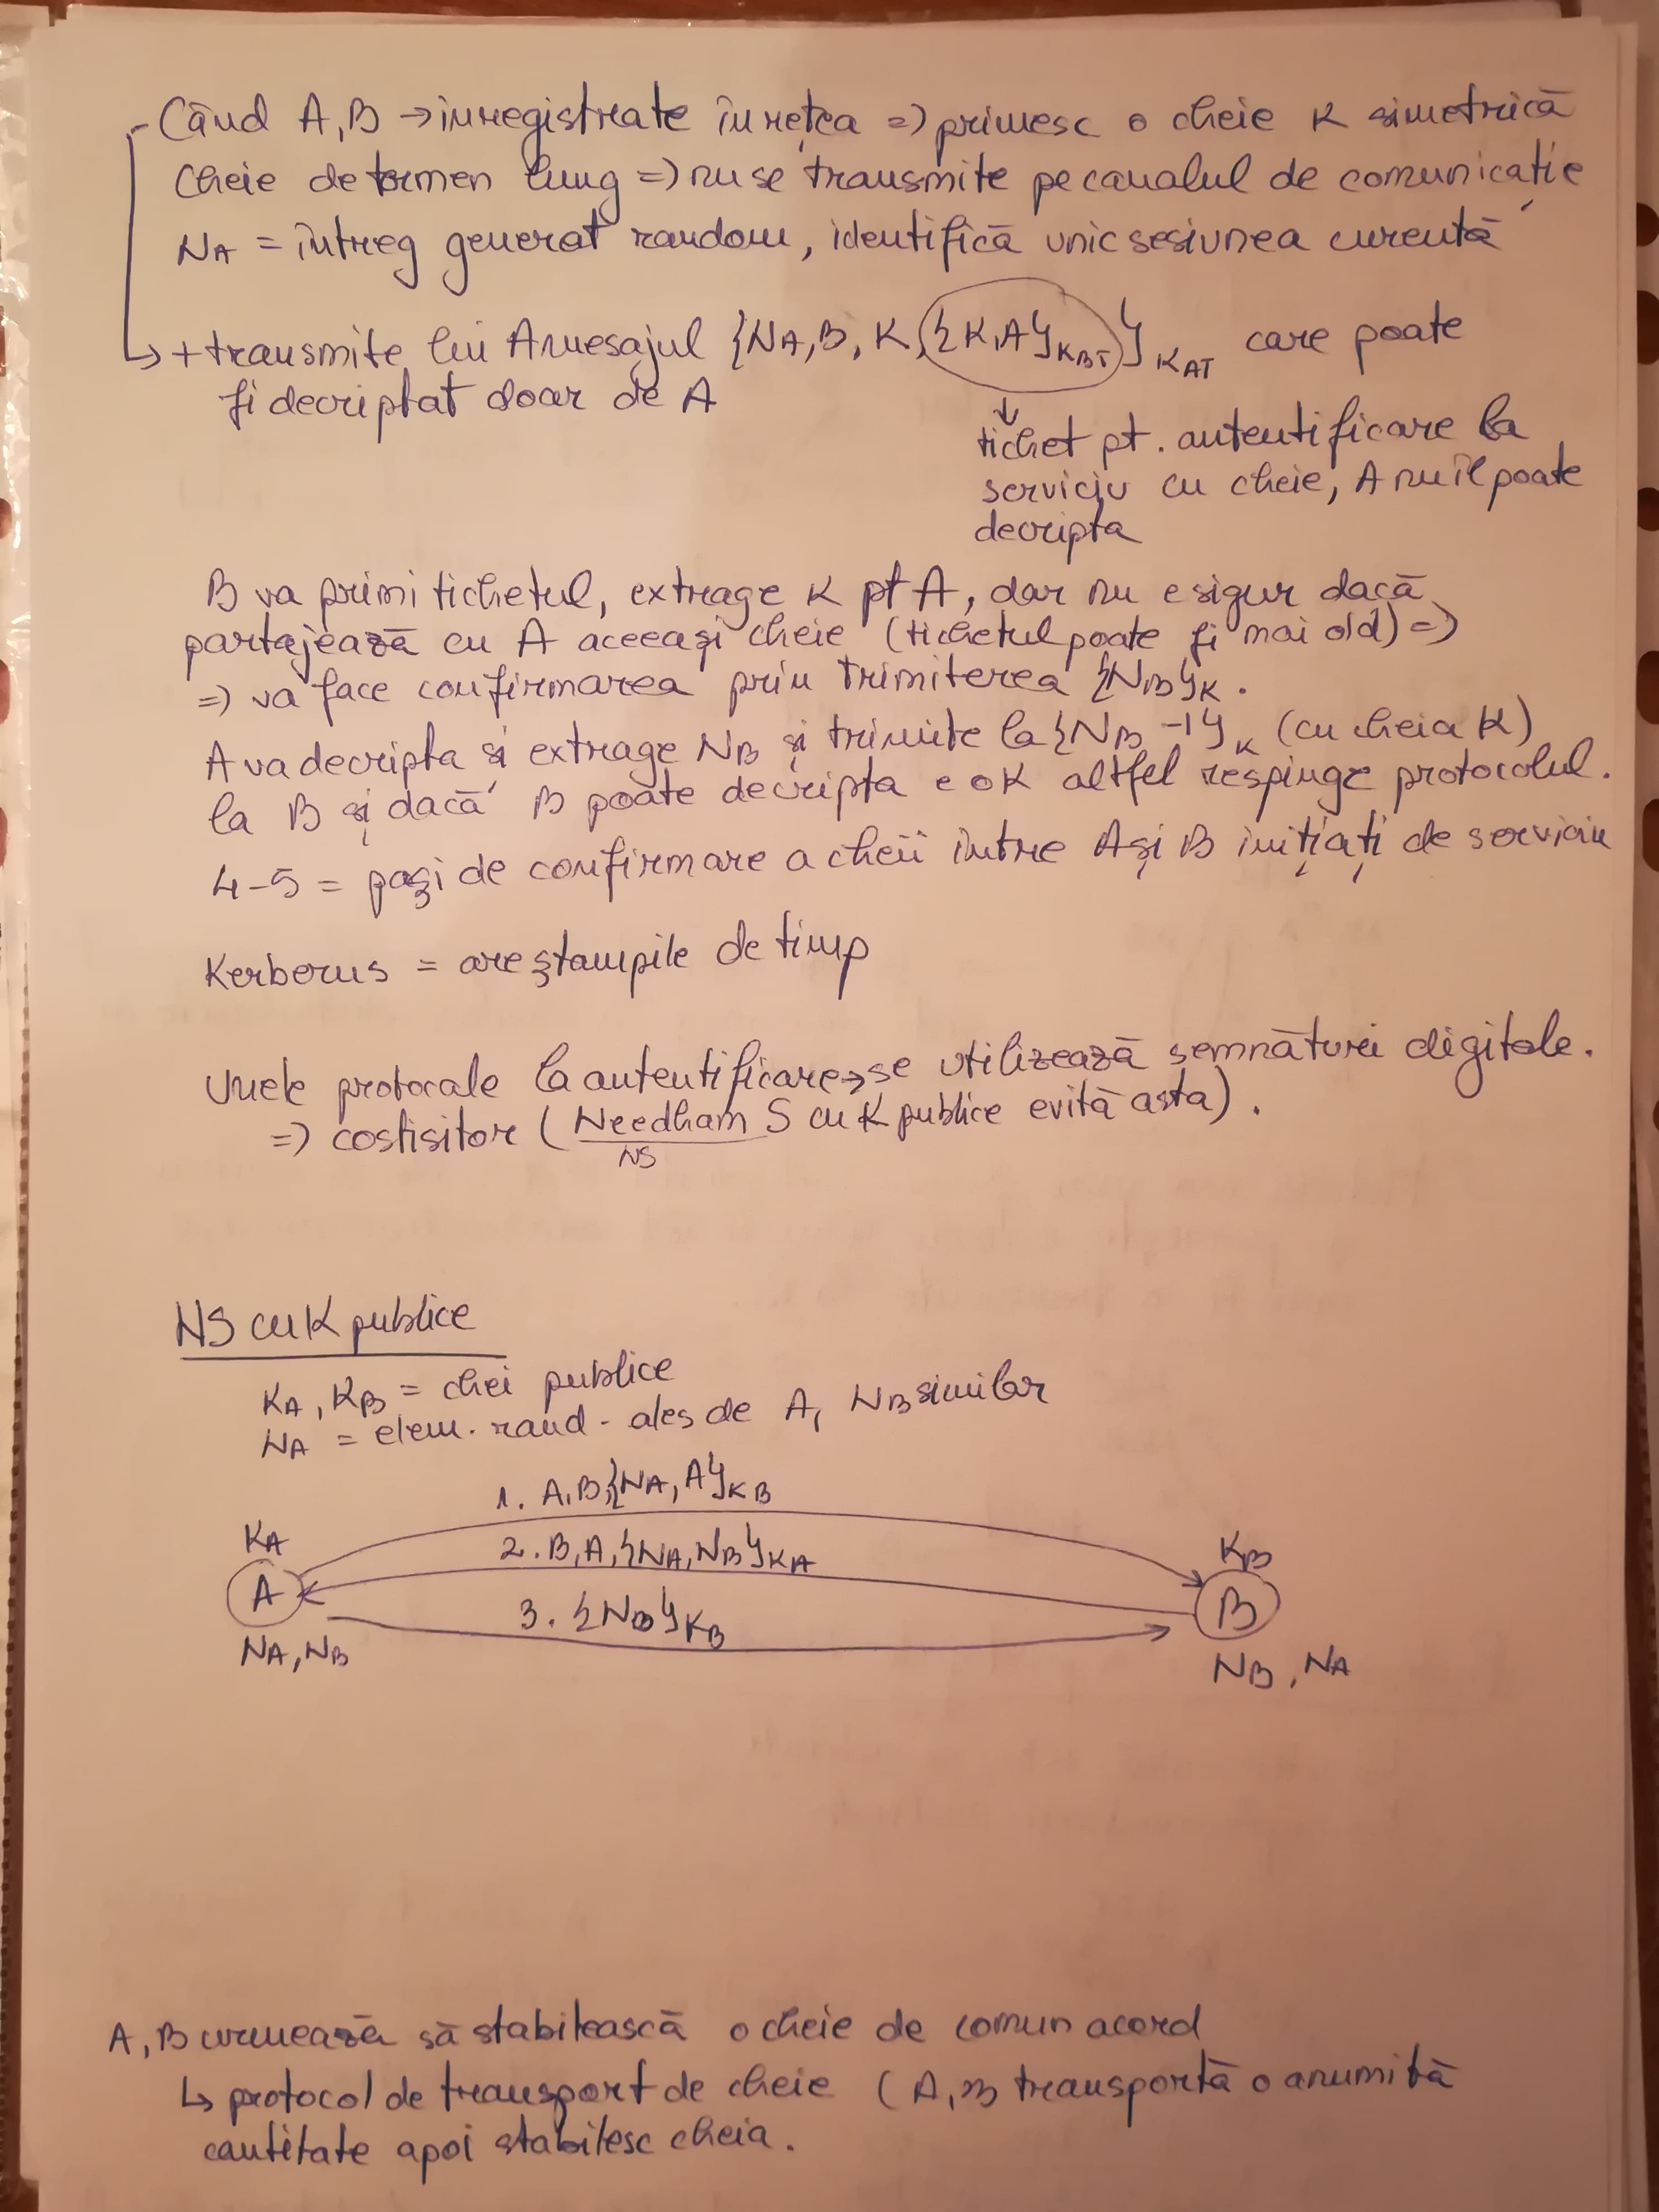 Când A,B → înregistrate în rețea => primesc o cheie K simetrică
Cheie de termen lung => nu se transmite pe canalul de comunicație
NA = întreg generat random, identifică unic sesiunea curentă
↳ + transmite lui A mesajul {NA, B, K, {K, A}KBT}KAT care poate
fi decriptat doar de A
↓
tichet pt. autentificare la
serviciu cu cheie, A nu îl poate
decripta
B va primi tichetul, extrage K pt A, dar nu e sigur dacă
partajează cu A aceeași cheie (tichetul poate fi mai old) =>
=> va face confirmarea prin trimiterea {NB}K.
A va decripta și extrage NB și trimite la {NB -1}K (cu cheia K)
la B și dacă B poate decripta e ok altfel respinge protocolul.
4-5 = pași de confirmare a cheii între A și B inițiați de serviciu
Kerberus = are ștampile de timp
Unele protocale la autentificare → se utilizează semnături digitale.
=> costisitor (Needham S cu K publice evită asta).
NS
NS cu K publice
KA, KB = chei publice
NA = elem. rand. ales de A, NB similar
1. A, B, {NA, A}KB
KA
2. B, A, {NA, NB}KA
KB
A
B
3. {NB}KB
NA, NB
NB, NA
A, B urmează să stabilească o cheie de comun acord
↳ protocol de transport de cheie (A, B transportă o anumită
cantitate apoi stabilesc cheia.